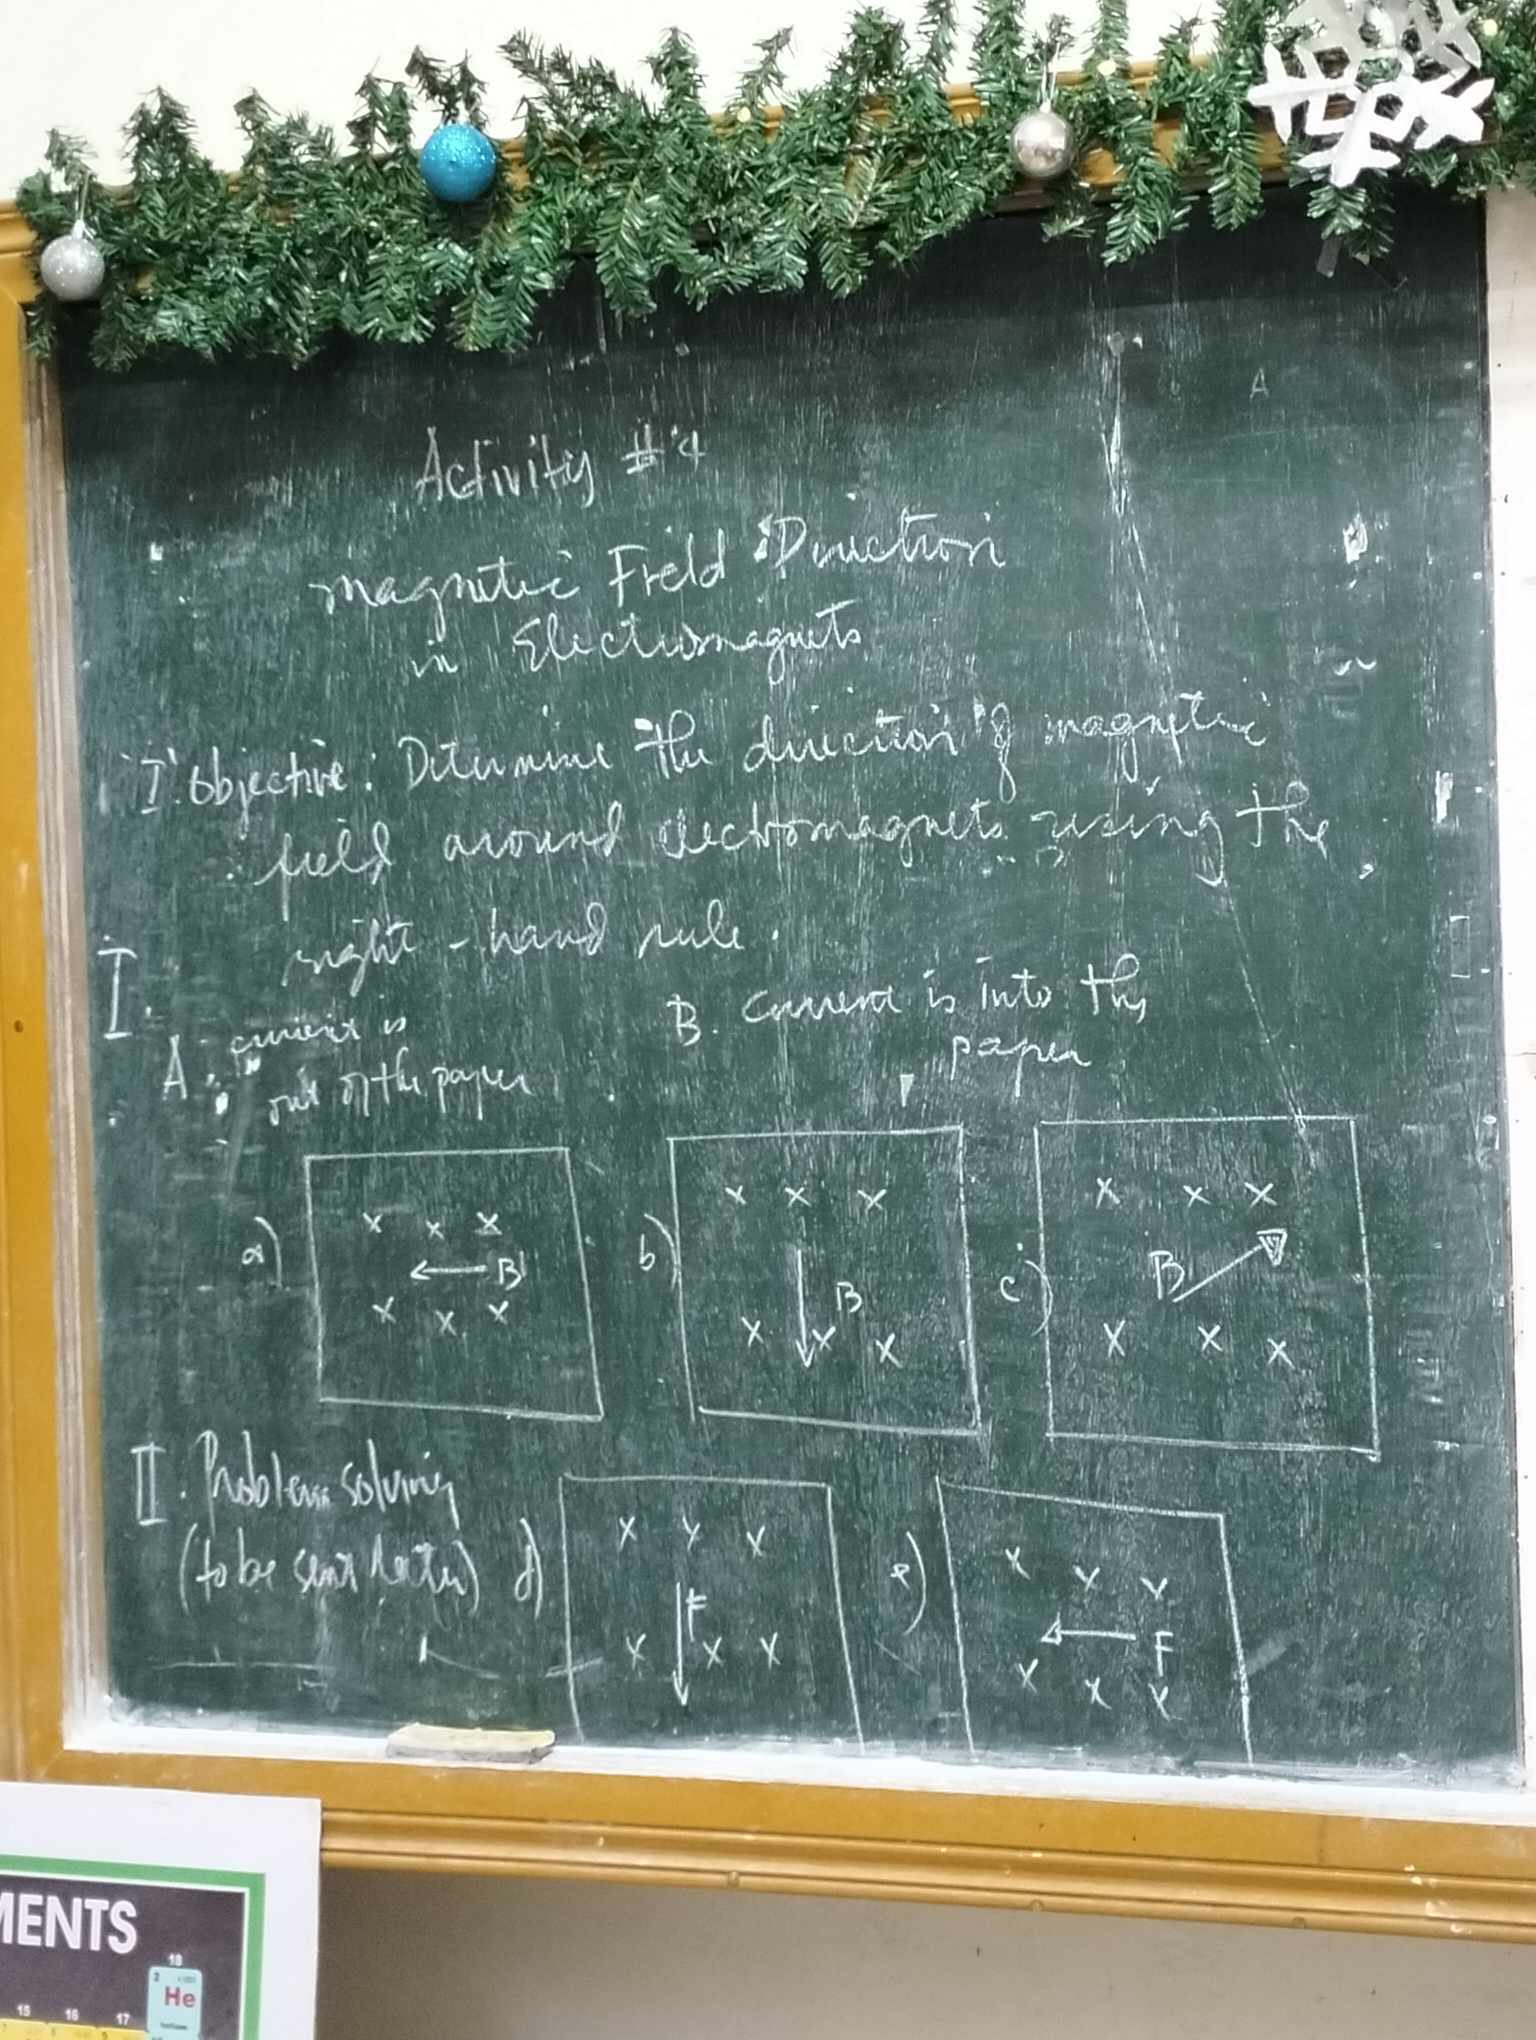 A
Activity #4
Magnetic Field Direction
in Electromagnets
I. Objective: Determine the direction of magnetic
field around electromagnets using the
right-hand rule.
I.
A. current is
out of the paper
B. Current is into the
paper
a)
x x x
B
x x x
b)
x x x
B
x x x
c)
x x x
B
x x x
II. Problem solving
(to be sent later)
d)
x x x
F
x x x
e)
x x x
F
x x x
MENTS
18
2
He
helium
15 16 17